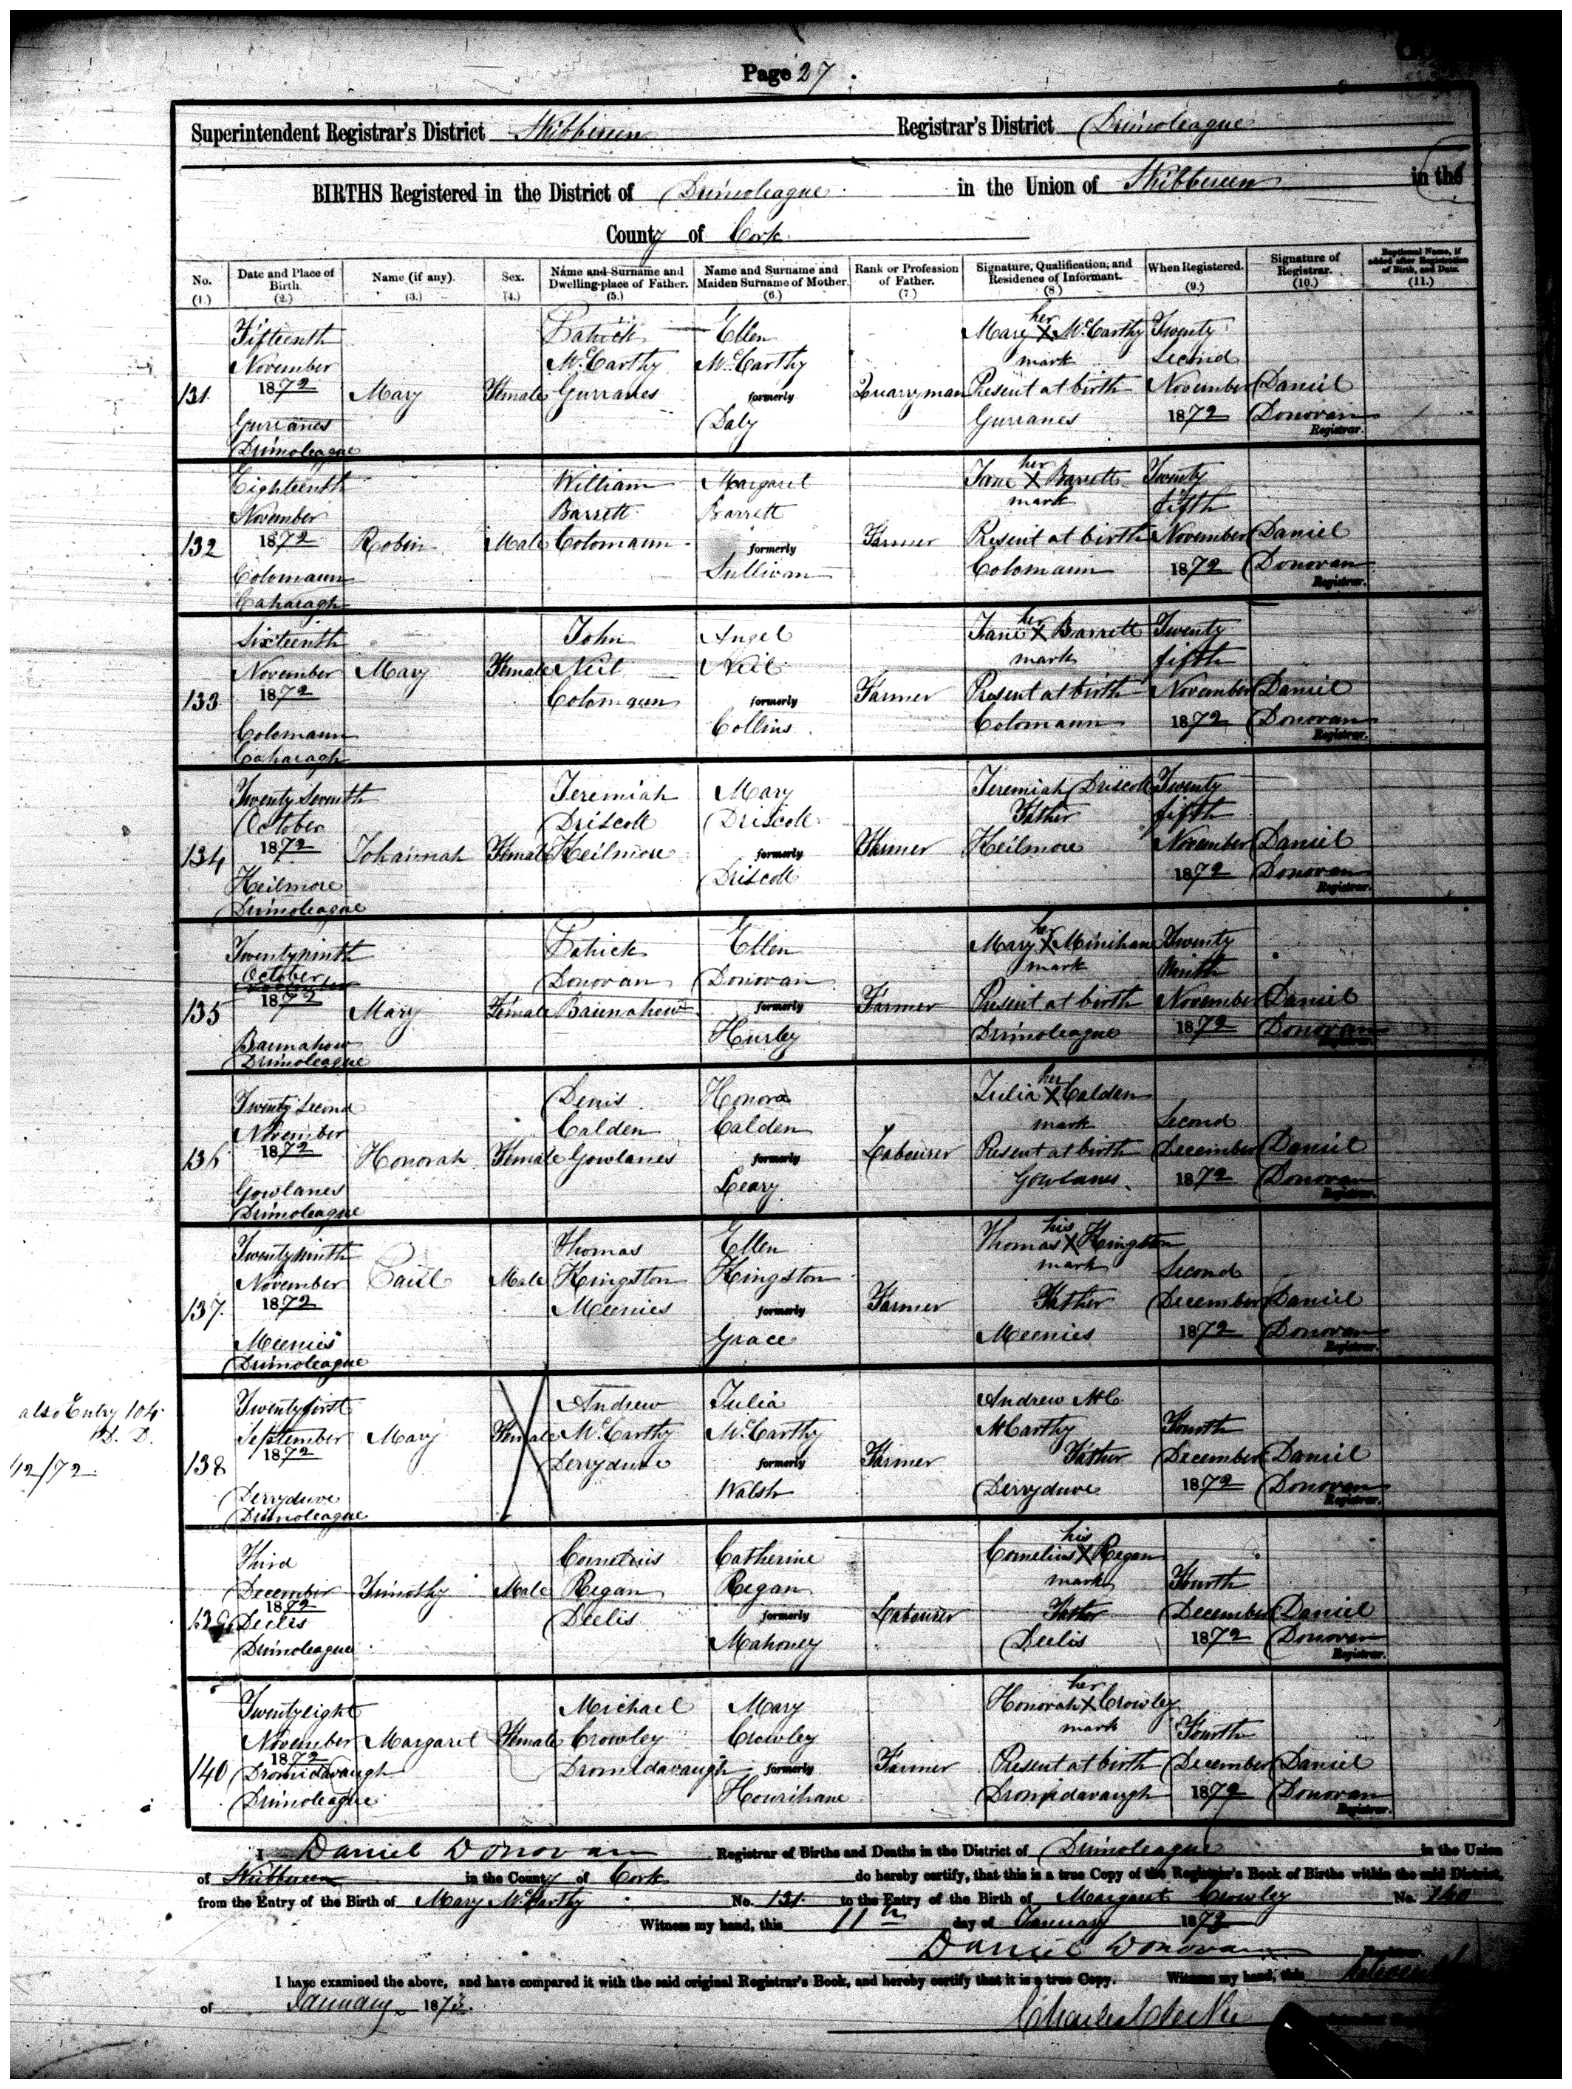 Page 27
Superintendent Registrar's District Skibbereen Registrar's District Drimoleague
BIRTHS Registered in the District of Drimoleague in the Union of Skibbereen in the
County of Cork
No. (1.) Date and Place of Birth. (2.) Name (if any). (3.) Sex. (4.) Name and Surname and Dwelling-place of Father. (5.) Name and Surname and Maiden Surname of Mother. (6.) Rank or Profession of Father. (7.) Signature, Qualification, and Residence of Informant. (8) When Registered. (9.) Signature of Registrar. (10.) Baptismal Name, if added after Registration of Birth, and Date. (11.)
131 Fifteenth November 1872 Gurranes Drimoleague Mary Female Patrick McCarthy Gurranes Ellen McCarthy formerly Daly Quarryman Mary her X mark McCarthy Present at birth Gurranes Twenty Second November 1872 Daniel Donovan Registrar.
132 Eighteenth November 1872 Colomaun Caharagh Robin Male William Barrett Colomaun Margaret Barrett formerly Sullivan Farmer Jane her X mark Barrett Present at birth Colomaun Twenty fifth November 1872 Daniel Donovan Registrar.
133 Sixteenth November 1872 Colomaun Caharagh Mary Female John Neil Colomaun Angel Neil formerly Collins Farmer Jane her X mark Barrett Present at birth Colomaun Twenty fifth November 1872 Daniel Donovan Registrar.
134 Twenty Seventh October 1872 Keilmore Drimoleague Johannah Female Jeremiah Driscoll Keilmore Mary Driscoll formerly Driscoll Farmer Jeremiah Driscoll Father Keilmore Twenty fifth November 1872 Daniel Donovan Registrar.
135 Twenty ninth October 1872 Baunahow Drimoleague Mary Female Patrick Donovan Baunahow Ellen Donovan formerly Hurley Farmer Mary her X mark Minihan Present at birth Drimoleague Twenty Ninth November 1872 Daniel Donovan Registrar.
136 Twenty Second November 1872 Gowlanes Drimoleague Honorah Female Denis Calden Gowlanes Honora Calden formerly Leary Labourer Julia her X mark Calden Present at birth Gowlanes Second December 1872 Daniel Donovan Registrar.
137 Twenty ninth November 1872 Meenies Drimoleague Paul Male Thomas Kingston Meenies Ellen Kingston formerly Grace Farmer Thomas his X mark Kingston Father Meenies Second December 1872 Daniel Donovan Registrar.
also Entry 104 D. D.
12/72
138 Twenty first September 1872 Derryduve Drimoleague Mary Female Andrew McCarthy Derryduve Julia McCarthy formerly Walsh Farmer Andrew McCarthy Father Derryduve Fourth December 1872 Daniel Donovan Registrar.
139 Third December 1872 Deelis Drimoleague Timothy Male Cornelius Regan Deelis Catherine Regan formerly Mahoney Labourer Cornelius his X mark Regan Father Deelis Fourth December 1872 Daniel Donovan Registrar.
140 Twenty eight November 1872 Dromidavaugh Drimoleague Margaret Female Michael Crowley Dromidavaugh Mary Crowley formerly Hourihane Farmer Honorah her X mark Crowley Present at birth Dromidavaugh Fourth December 1872 Daniel Donovan Registrar.
I Daniel Donovan Registrar of Births and Deaths in the District of Drimoleague in the Union
of Skibbereen in the County of Cork do hereby certify, that this is a true Copy of the Registrar's Book of Births within the said District,
from the Entry of the Birth of Mary McCarthy No. 131 to the Entry of the Birth of Margaret Crowley No. 140
Witness my hand, this 11th day of January 1873
Daniel Donovan Registrar.
I have examined the above, and have compared it with the said original Registrar's Book, and hereby certify that it is a true Copy. Witness my hand, this
of January 1873.